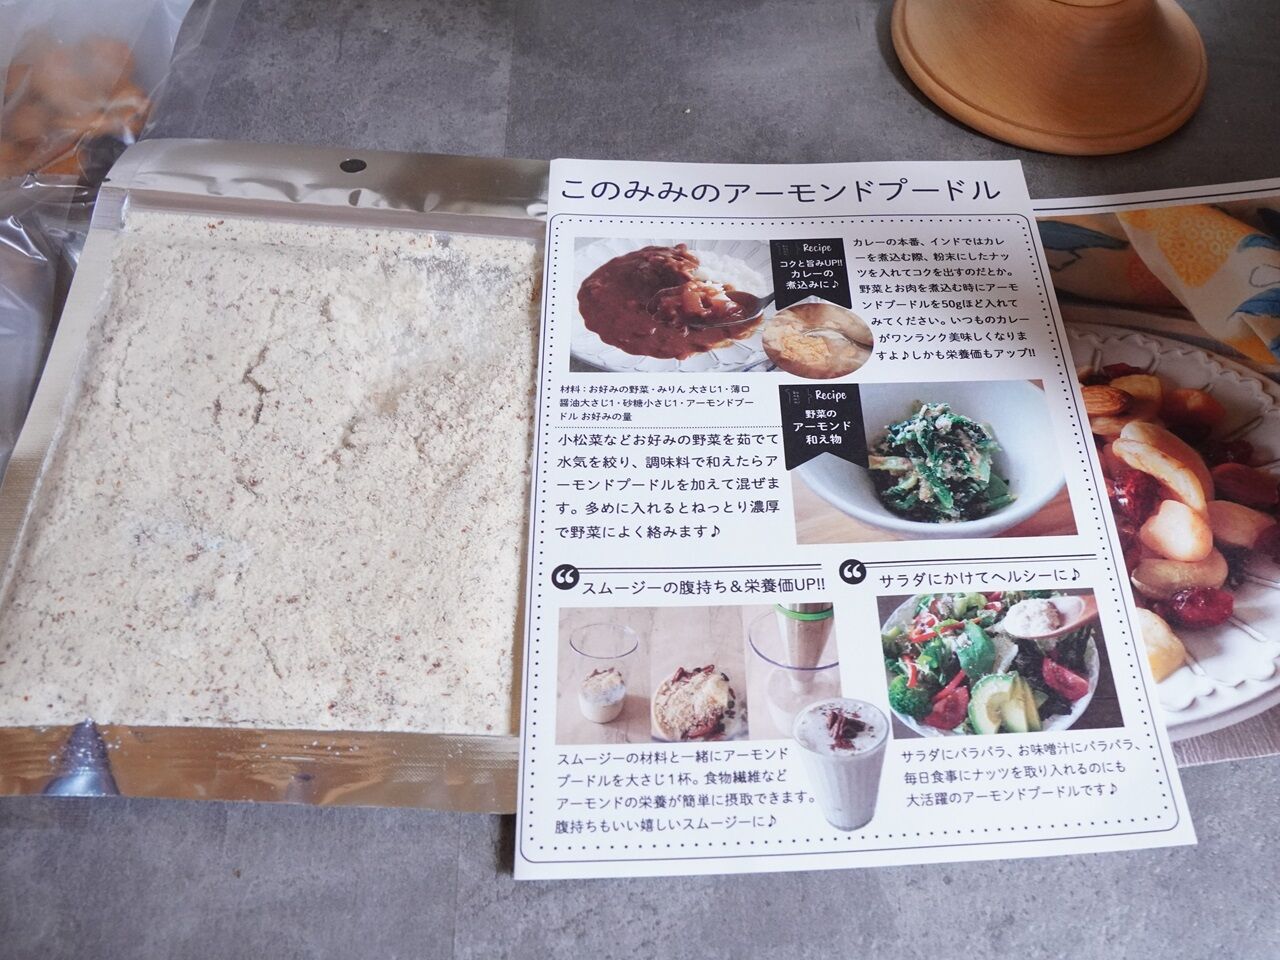 このみみのアーモンドプードル
Recipe
コクと旨みUP!!
カレーの
煮込みに♪
カレーの本番、インドではカレ
ーを煮込む際、粉末にしたナッ
ツを入れてコクを出すのだとか。
野菜とお肉を煮込む時にアーモ
ンドプードルを50gほど入れて
みてください。いつものカレー
がワンランク美味しくなりま
すよ♪しかも栄養価もアップ!!
材料:お好みの野菜・みりん 大さじ1・薄口
醤油大さじ1・砂糖小さじ1・アーモンドプー
ドル お好みの量
小松菜などお好みの野菜を茹でて
水気を絞り、調味料で和えたらア
ーモンドプードルを加えて混ぜま
す。多めに入れるとねっとり濃厚
で野菜によく絡みます♪
Recipe
野菜の
アーモンド
和え物
スムージーの腹持ち&栄養価UP!!
スムージーの材料と一緒にアーモンド
プードルを大さじ1杯。食物繊維など
アーモンドの栄養が簡単に摂取できます。
腹持ちもいい嬉しいスムージーに♪
サラダにかけてヘルシーに♪
サラダにパラパラ、お味噌汁にパラパラ、
毎日食事にナッツを取り入れるのにも
大活躍のアーモンドプードルです♪